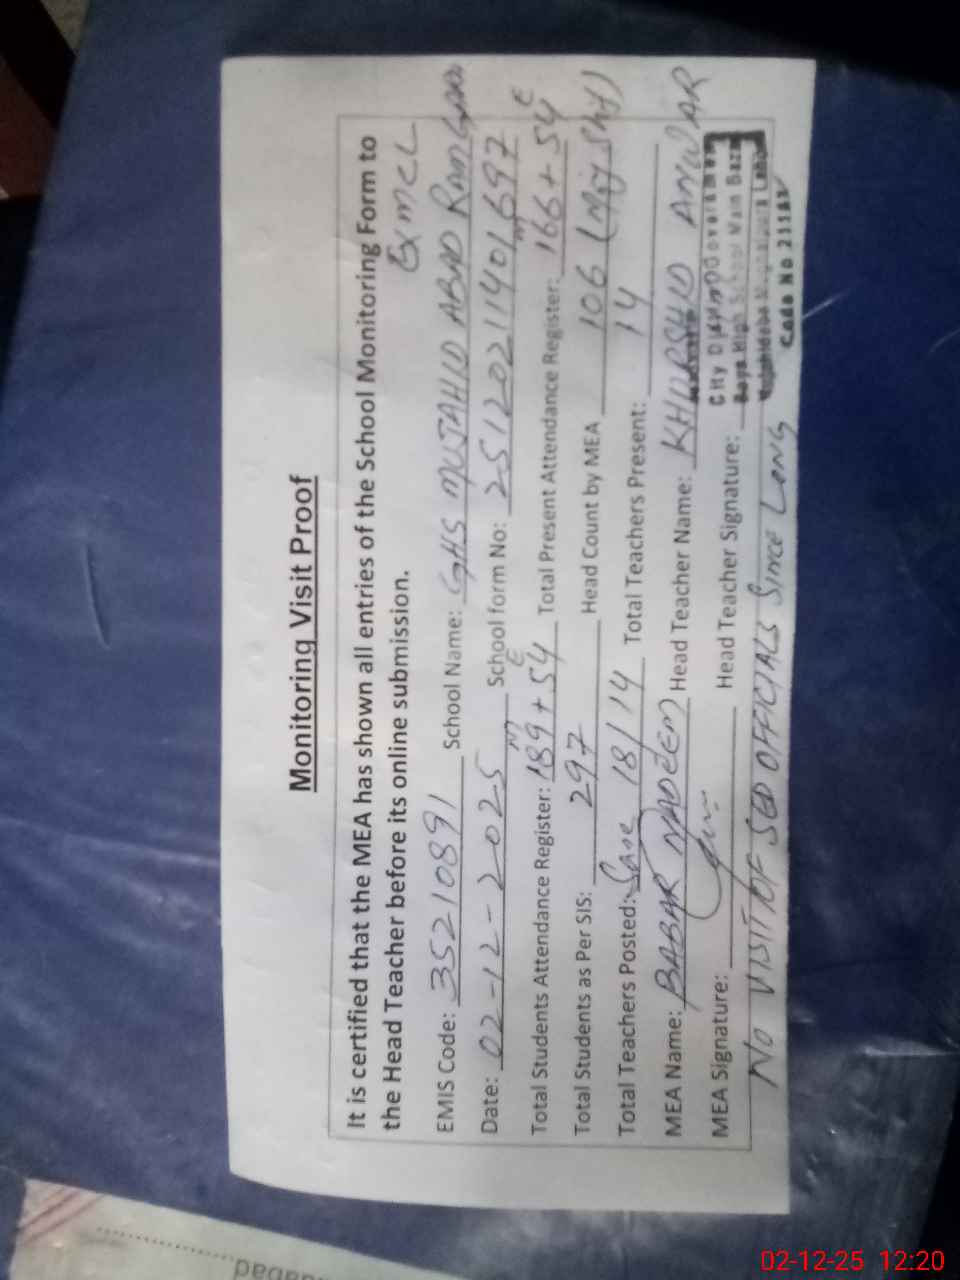 Monitoring Visit Proof
It is certified that the MEA has shown all entries of the School Monitoring Form to
the Head Teacher before its online submission.
Ex MCL
EMIS Code: 35210891 School Name: GHS MUJAHID ABAD
Date: 02-12-2025 School form No: 25120211401697
Total Students Attendance Register: M 189 + 54 E Total Present Attendance Register: M 166 + 54 E
Total Students as Per SIS: 297 Head Count by MEA 106 (Mor Shf)
Total Teachers Posted: 18/14 Total Teachers Present: 14
MEA Name: BABAR NADEEM Head Teacher Name: KHURSHID ANWAR
MEA Signature: Head Teacher Signature:
City Government
Boys High School
Code No 21182
NO VISIT OF SED OFFICIALS Since LONG
abad
02-12-25 12:20